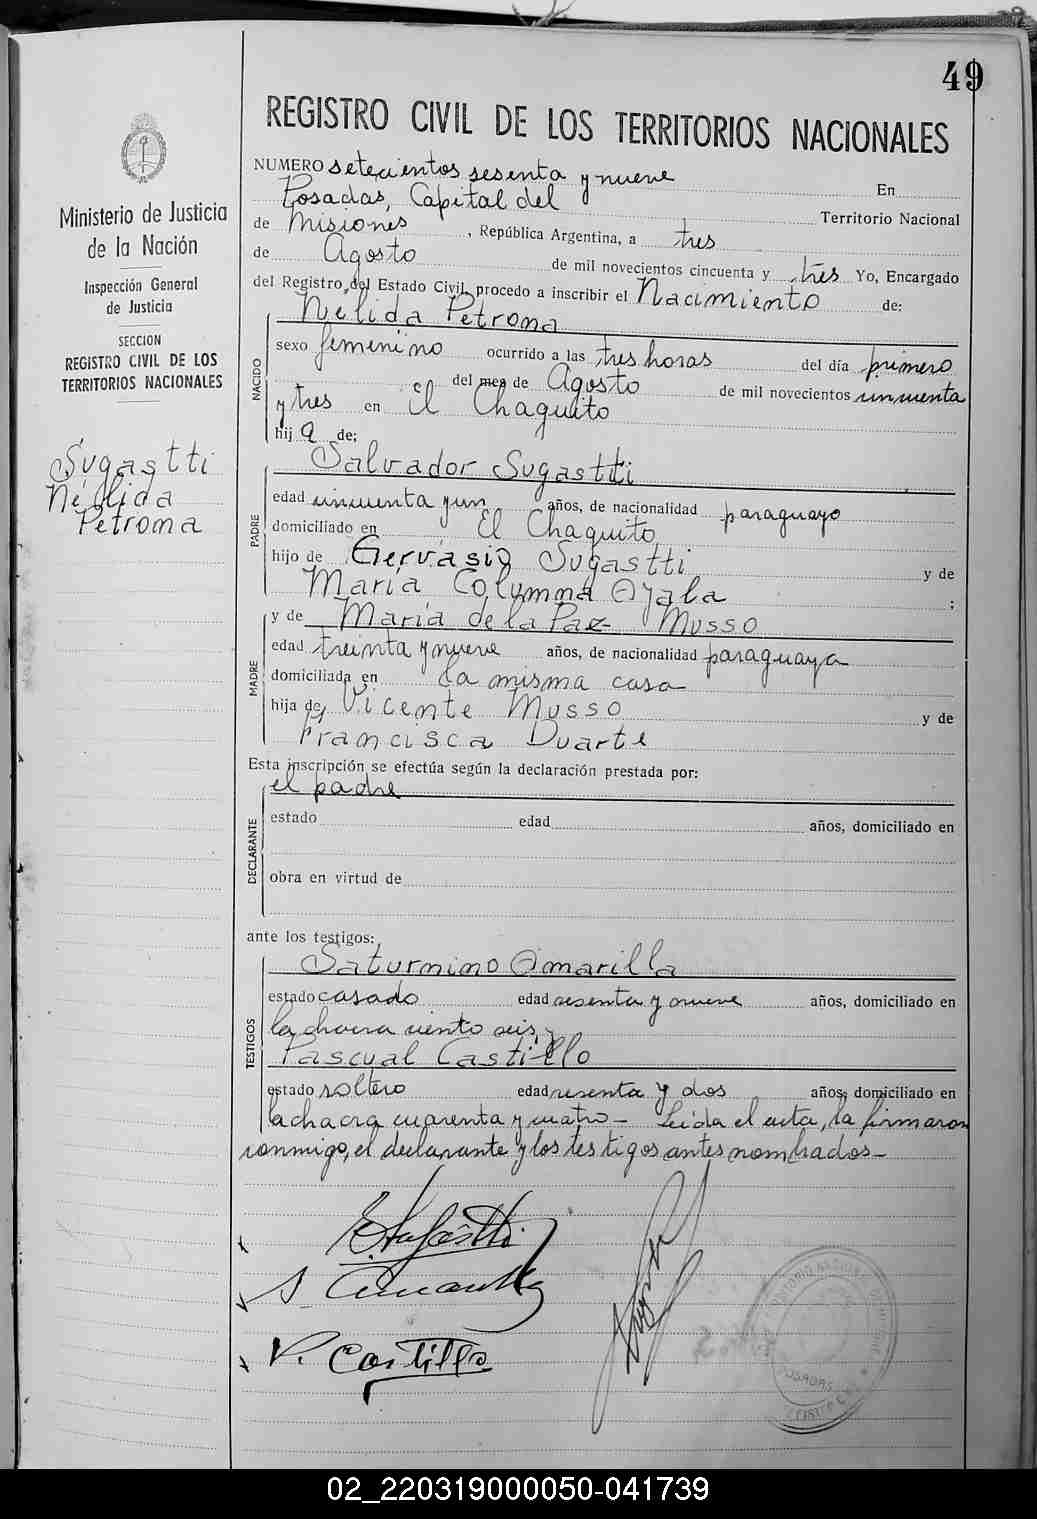 49
REGISTRO CIVIL DE LOS TERRITORIOS NACIONALES
Ministerio de Justicia
de la Nación
Inspección General
de Justicia
SECCION
REGISTRO CIVIL DE LOS
TERRITORIOS NACIONALES
Sugastti
Nélida
Petrona
NUMERO setecientos sesenta y nueve En
Posadas, Capital del Territorio Nacional
de Misiones, República Argentina, a tres
de Agosto de mil novecientos cincuenta y tres Yo, Encargado
del Registro del Estado Civil, procedo a inscribir el Nacimiento de:
NACIDO
Nélida Petrona
sexo femenino ocurrido a las tres horas del día primero
del mes de Agosto de mil novecientos cincuenta
y tres en El Chaquito
hija de:
PADRE
Salvador Sugastti
edad cincuenta y un años, de nacionalidad paraguayo
domiciliado en El Chaquito
hijo de Gervasio Sugastti y de
María Columna Ayala ;
MADRE
y de María de la Paz Musso
edad treinta y nueve años, de nacionalidad paraguaya
domiciliada en la misma casa
hija de Vicente Musso y de
Francisca Duarte
Esta inscripción se efectúa según la declaración prestada por:
DECLARANTE
el padre
estado edad años, domiciliado en
obra en virtud de
ante los testigos:
TESTIGOS
Saturnino Amarilla
estado casado edad sesenta y nueve años, domiciliado en
la chacra ciento seis y
Pascual Castillo
estado soltero edad sesenta y dos años, domiciliado en
la chacra cuarenta y cuatro- Leída el acta, la firmaron
conmigo, el declarante y los testigos antes nombrados-
S. Amarilla
P. Castillo
POSADAS
02_220319000050-041739